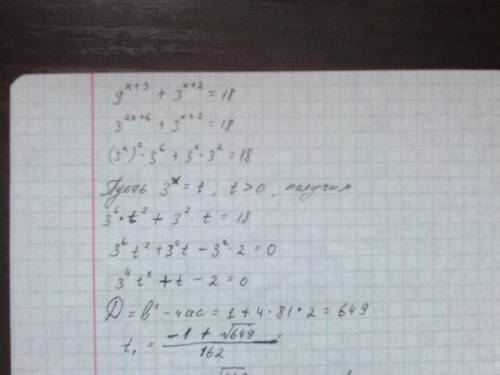 9^{x+3} + 3^{x+2} = 18
3^{2x+6} + 3^{x+2} = 18
(3^x)^2 · 3^6 + 3^x · 3^2 = 18
Пусть 3^x = t, t > 0, получим
3^6 · t^2 + 3^2 · t = 18
3^6 t^2 + 3^2 t − 3^2 · 2 = 0
3^4 t^2 + t − 2 = 0
D = b^2 − 4ac = 1 + 4 · 81 · 2 = 649
t_1 = \frac{−1 + √649}{162}